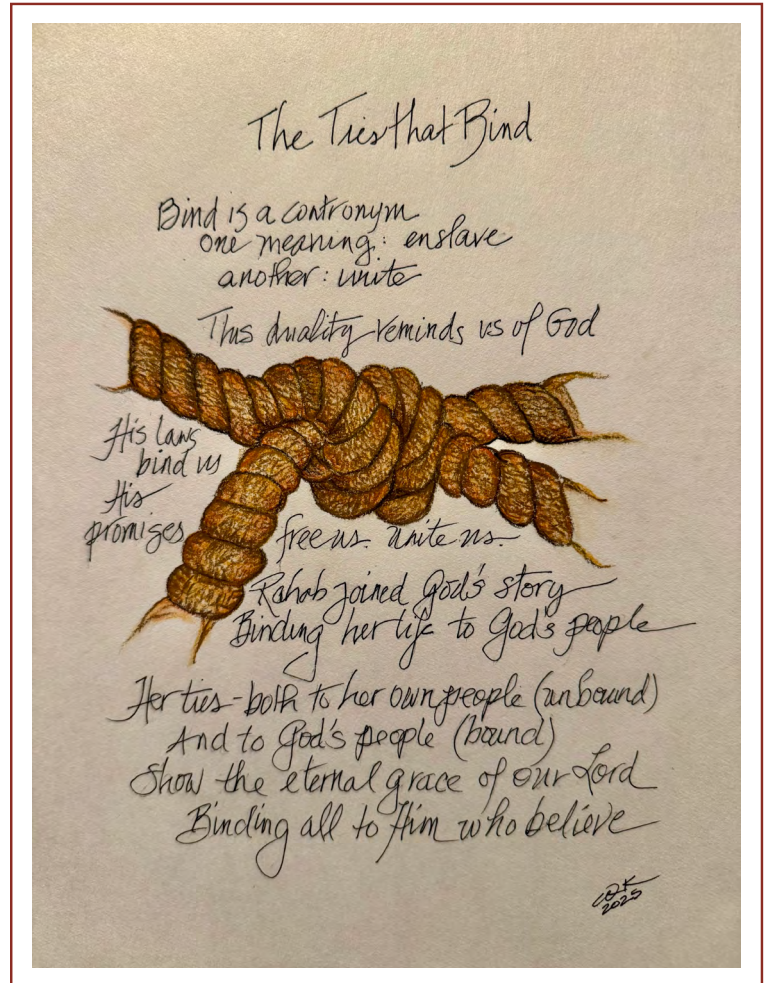 The Ties that Bind
Bind is a contronym
one meaning: enslave
another: unite
This duality reminds us of God
His laws
bind us
His
promises
free us. unite us.
Rahab joined God's story
Binding her life to God's people
Her ties - both to her own people (unbound)
And to God's people (bound)
Show the eternal grace of our Lord
Binding all to Him who believe
2025